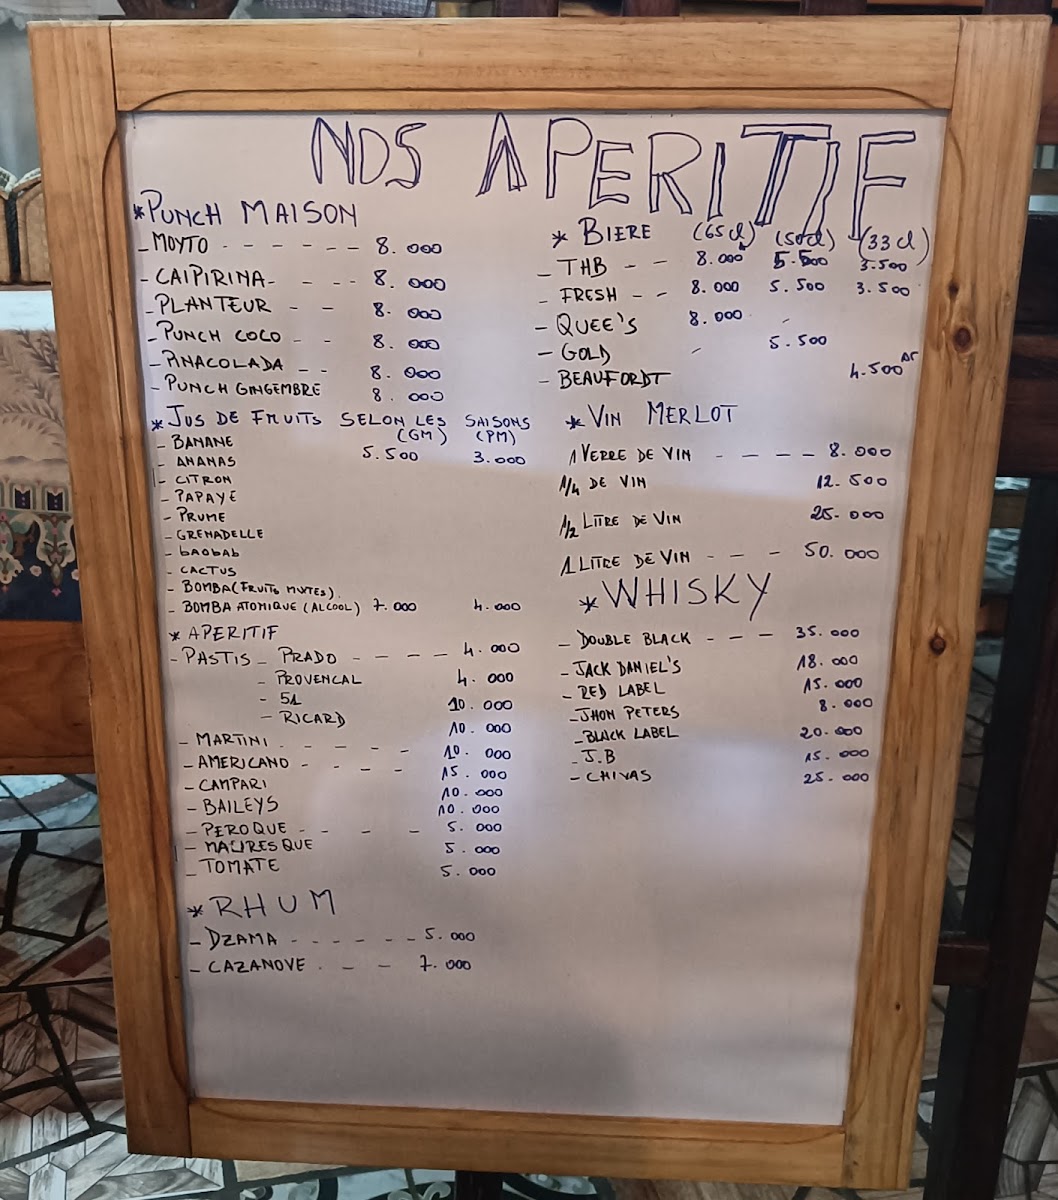 NOS APERITIF
* PUNCH MAISON
- MOYTO - - - - - - 8.000
- CAIPIRINA - - - - 8.000
- PLANTEUR - - 8.000
- PUNCH COCO - - 8.000
- PINACOLADA - - 8.000
- PUNCH GINGEMBRE 8.000
* JUS DE FRUITS SELON LES SAISONS
(GM) (PM)
- BANANE 5.500 3.000
- ANANAS
- CITRON
- PAPAYE
- PRUME
- GRENADELLE
- baobab
- CACTUS
- BOMBA (FRUITS MIXTES)
- BOMBA ATOMIQUE (ALCOOL) 7.000 4.000
* APERITIF
- PASTIS - PRADO - - - - 4.000
- PROVENCAL 4.000
- 51 10.000
- RICARD 10.000
- MARTINI - - - - 10.000
- AMERICANO - - - - 15.000
- CAMPARI 10.000
- BAILEYS 10.000
- PEROQUE - - - - 5.000
- MAURESQUE 5.000
- TOMATE 5.000
* RHUM
- DZAMA - - - - - - 5.000
- CAZANOVE - - - 7.000
* BIERE (65cl) (50cl) (33cl)
- THB - - 8.000 5.500 3.500
- FRESH - - 8.000 5.500 3.500
- QUEE'S 8.000 -
- GOLD - 5.500
- BEAUFORDT 4.500 AR
* VIN MERLOT
1 VERRE DE VIN - - - - 8.000
1/4 DE VIN 12.500
1/2 LITRE DE VIN 25.000
1 LITRE DE VIN - - - 50.000
* WHISKY
- DOUBLE BLACK - - - 35.000
- JACK DANIEL'S 18.000
- RED LABEL 15.000
- JHON PETERS 8.000
- BLACK LABEL 20.000
- J.B 15.000
- CHIVAS 25.000